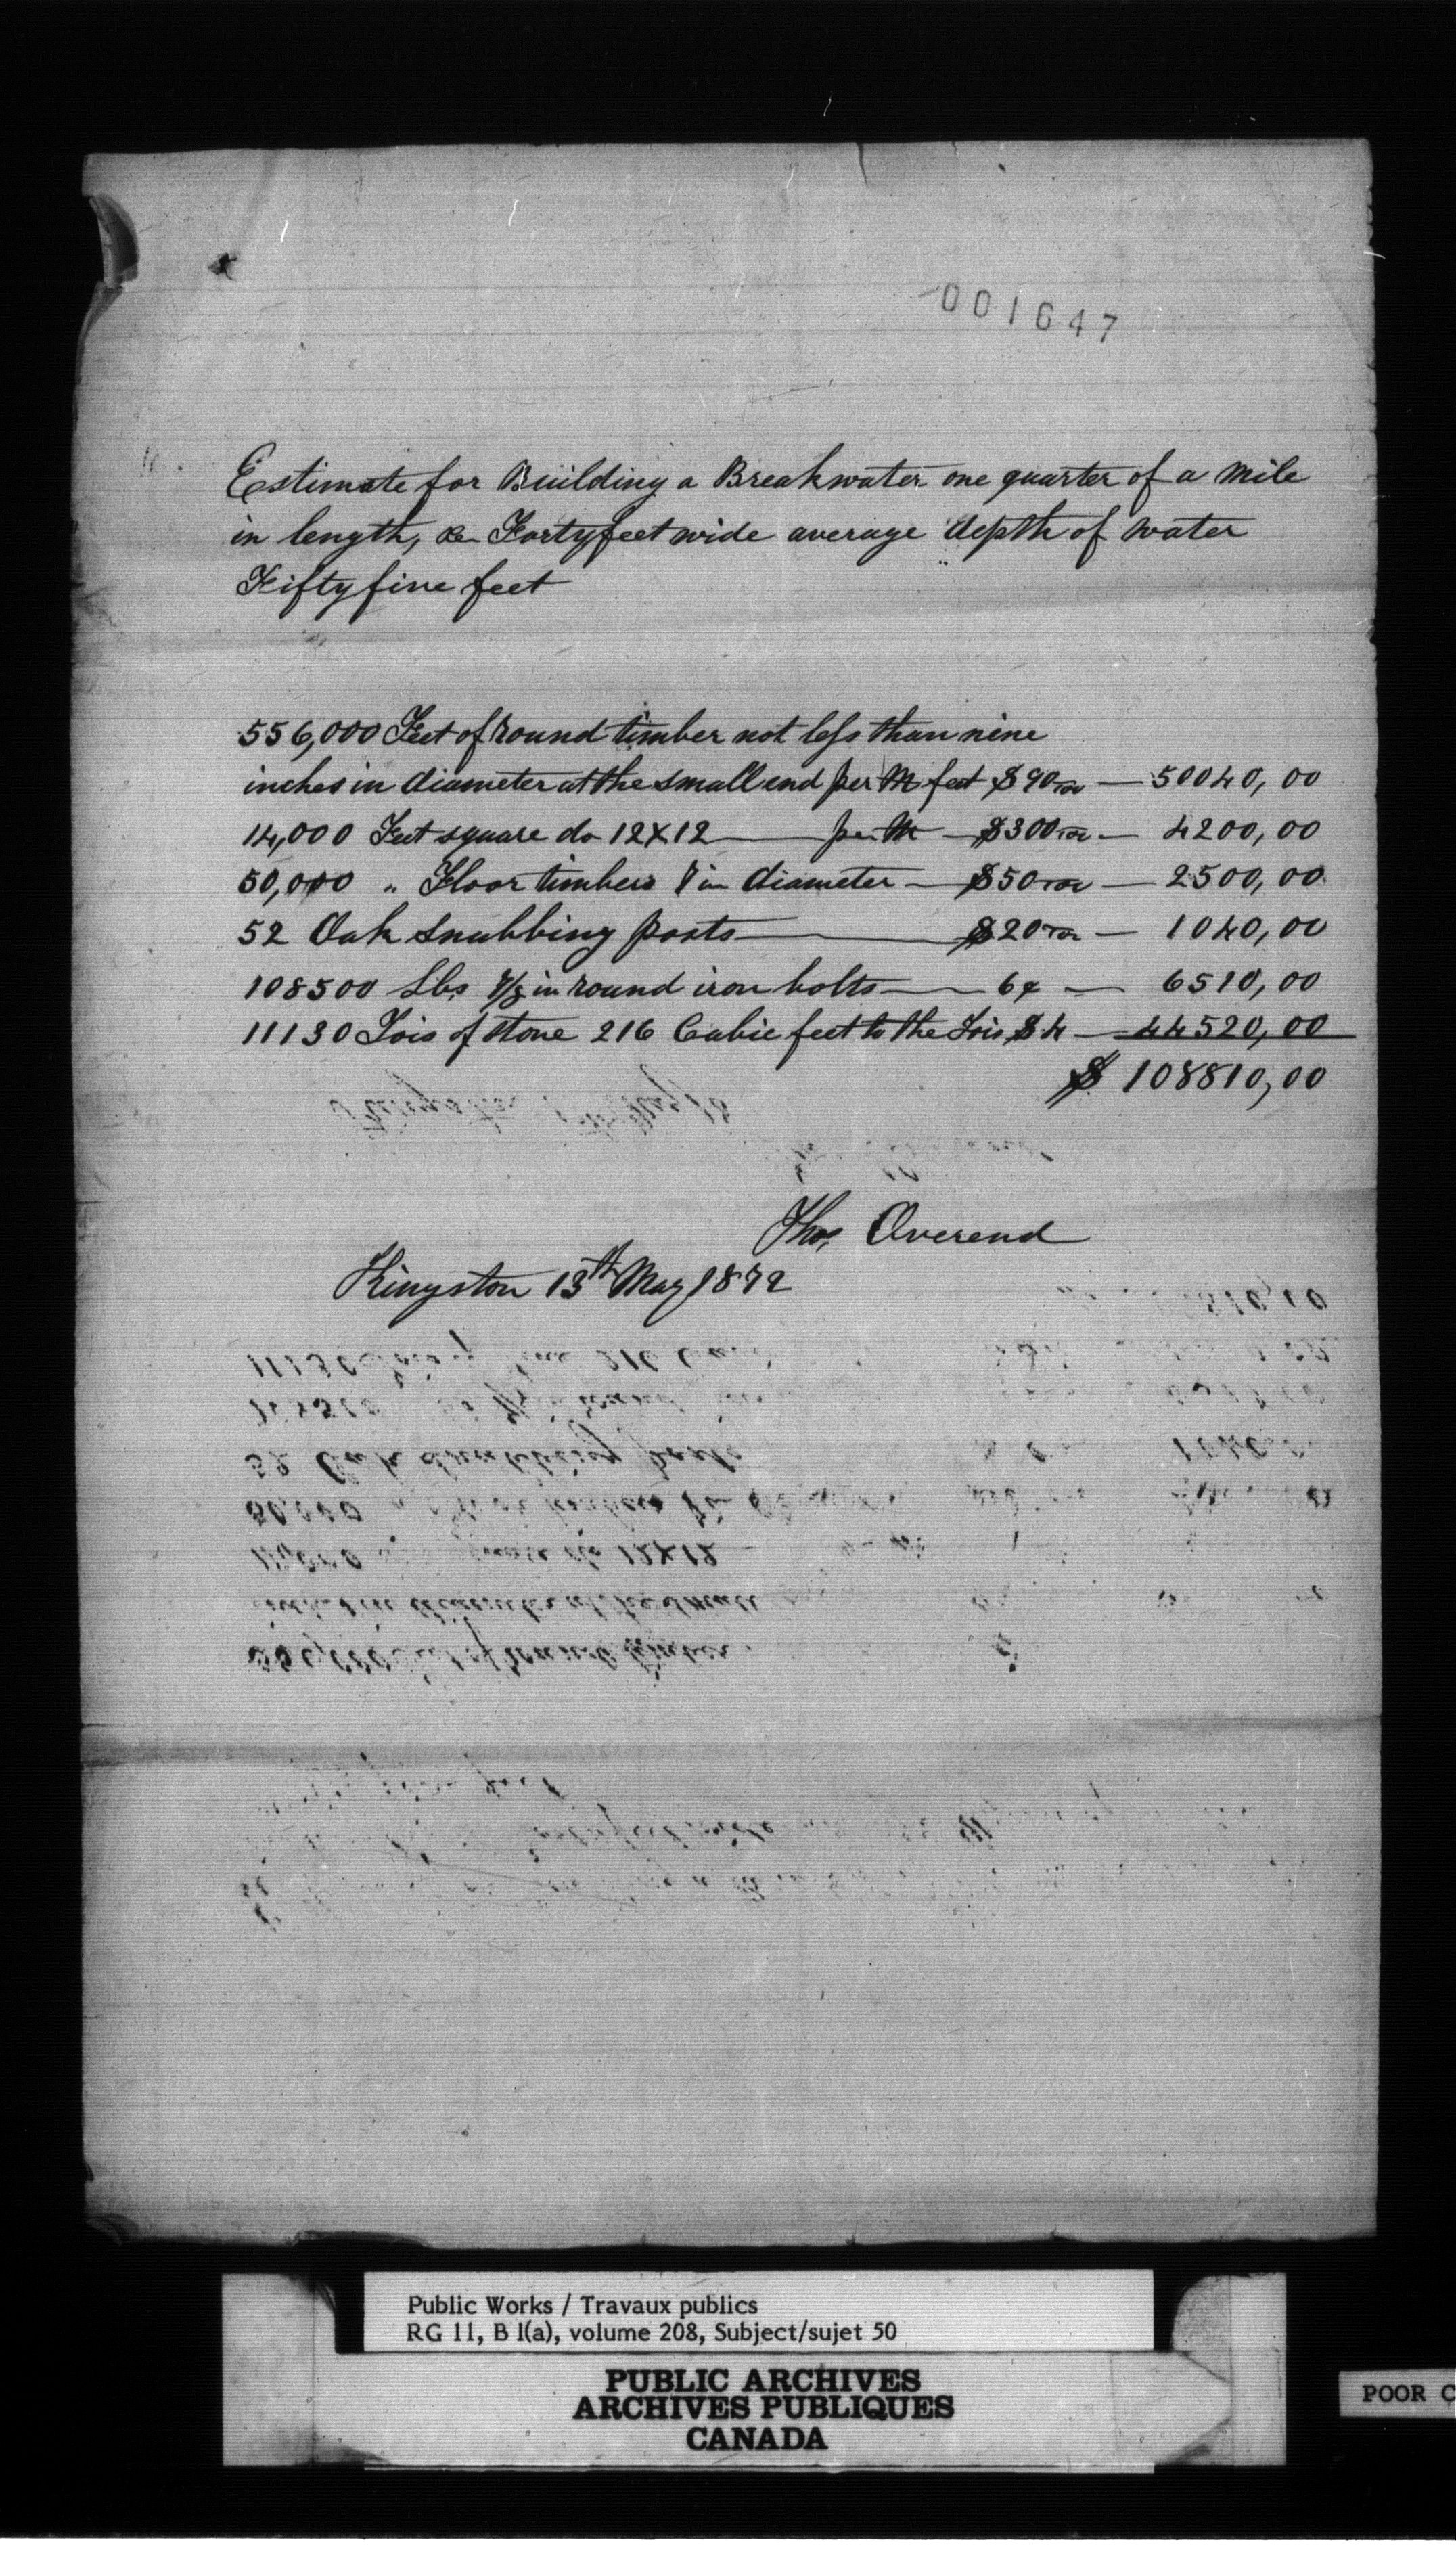 001647
Estimate for Building a Breakwater one quarter of a mile
in length, & Fortyfeet wide average depth of water
Fifty five feet
556,000 Feet of round timber not less than nine
inches in diameter at the small end per M feet $90 00/100 — 50040,00
14,000 Feet square do 12x12 — per M — $300 00/100 — 4200,00
50,000 " Floor timbers 8 in diameter — $50 00/100 — 2500,00
52 Oak Snubbing posts — $20 00/100 — 1040,00
108500 Lbs 7/8 in round iron bolts — 6¢ — 6510,00
11130 Tois of stone 216 Cubic feet to the Tois $4 — 44520,00
$ 108810,00
Thos. Overend
Kingston 13th May 1872
Public Works / Travaux publics
RG 11, B 1(a), volume 208, Subject/sujet 50
PUBLIC ARCHIVES
ARCHIVES PUBLIQUES
CANADA
POOR C